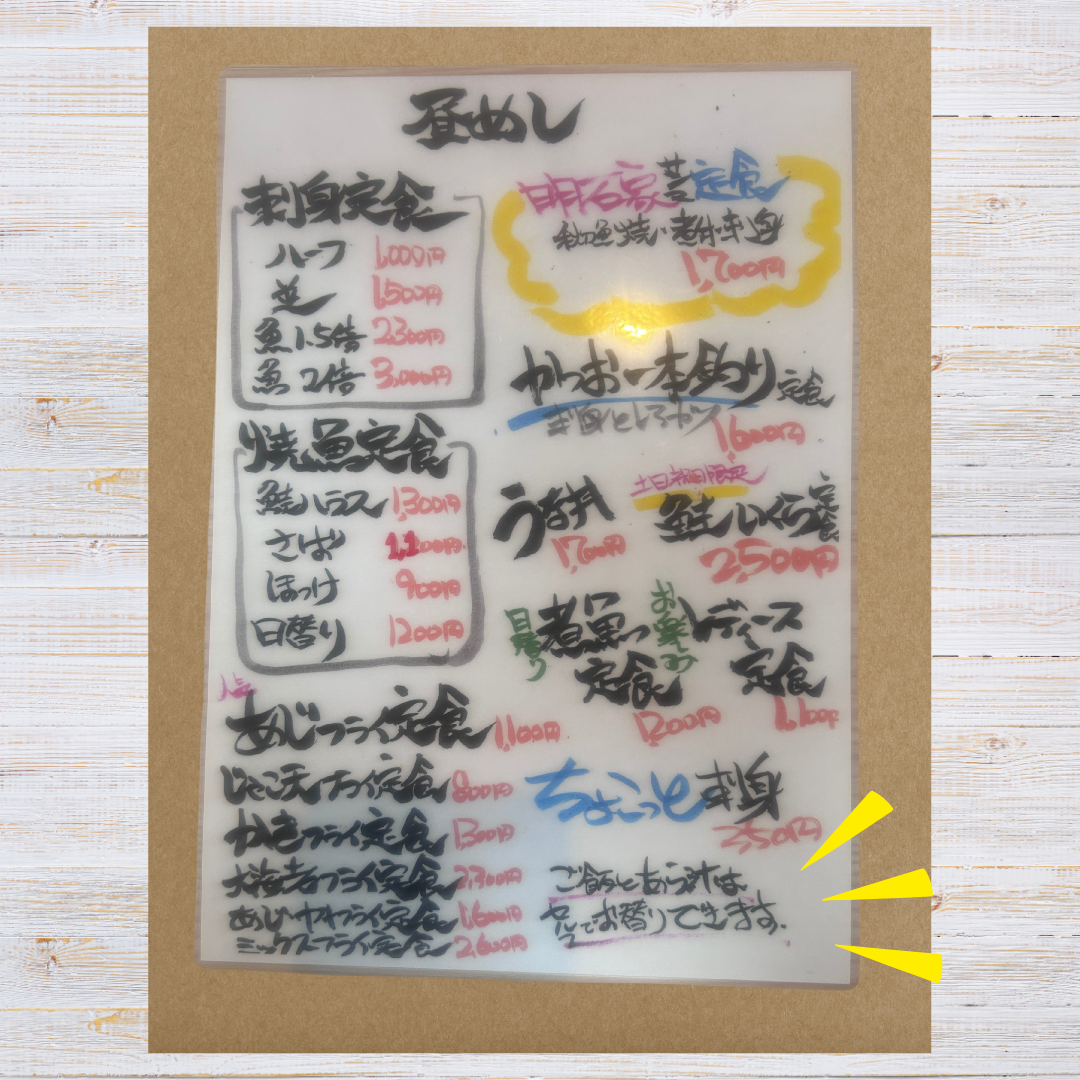 昼めし
刺身定食
ハーフ 1,000円
並 1,500円
魚1.5倍 2,300円
魚2倍 3,000円
焼魚定食
鮭ハラス 1,300円
さば 1,100円
ほっけ 900円
日替り 1200円
人気
あじフライ定食 1,100円
じゃこ天フライ定食 800円
かきフライ定食 1300円
大海老フライ定食 2,300円
あじ・かきフライ定食 1,600円
ミックスフライ定食 2,600円
明石家 定食
焼い 煮付 刺身
1,700円
かつお一本釣り定食
刺身とレアカツ
1600円
うな丼
1,700円
土日祝日限定
鮭いくら定食
2,500円
日替り 煮魚定食
1200円
お楽しみ レディース定食
1,100円
ちょこっと刺身
350円
ご飯とあら汁は
セルフでお替りできます。